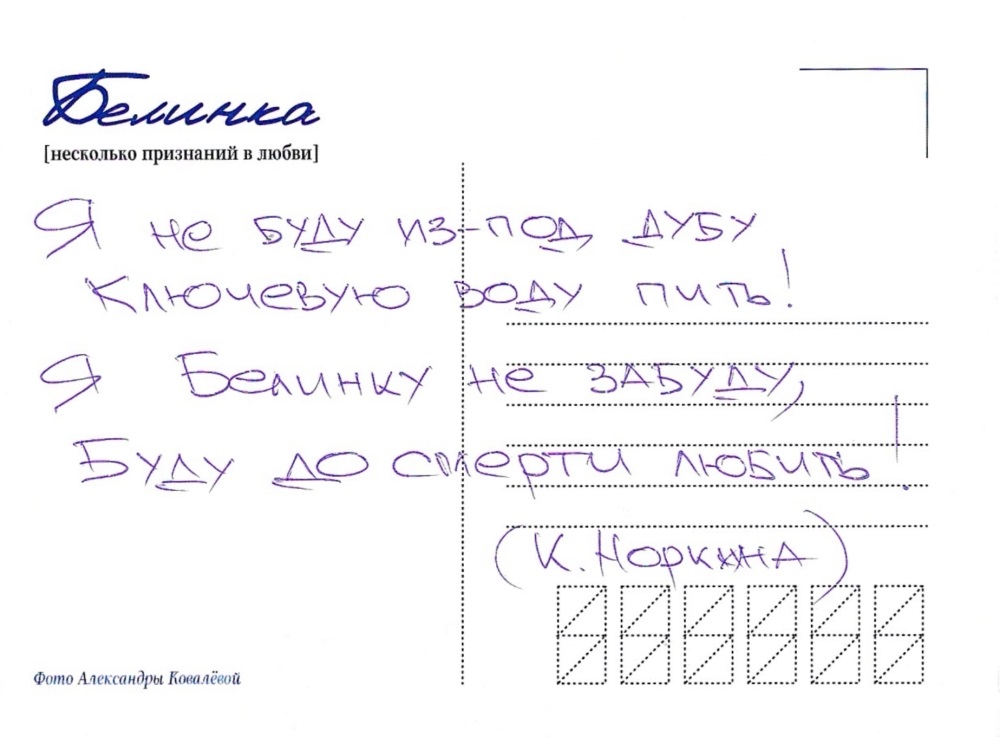 Белинка
[несколько признаний в любви]
Я не буду из-под дубу
Ключевую воду пить!
Я Белинку не забуду,
Буду до смерти любить!
(К. Норкина)
Фото Александры Ковалёвой